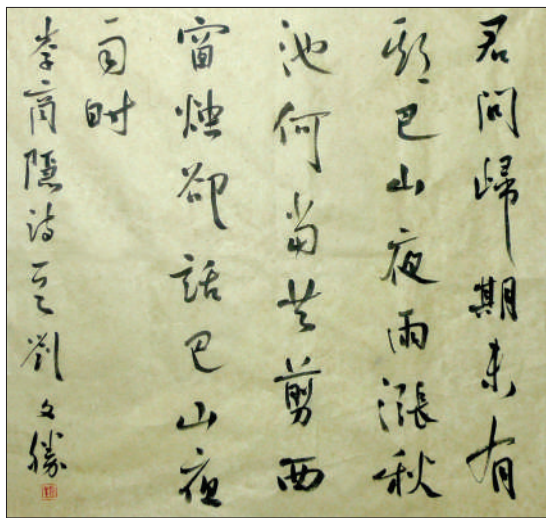 君問歸期未有
期巴山夜雨漲秋
池何當共剪西
窗燭卻話巴山夜
雨時
李商隱詩一首劉文勝